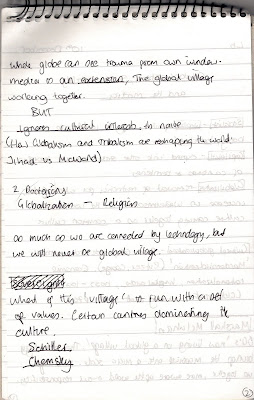 whole globe can see trauma from own window.
media is an extension, The global village
working together.
BUT
Ignores cultural interests, to naive
(How Globalism and Tribalism are reshaping the world.
Jihad vs McWorld)
2
Globalization - Religion
as much as we are connected by technology, but
we will never be global village.
what if this 'village' is run with a set
of values. Certain countries dominating the
culture.
Schiller
Chomsky
2